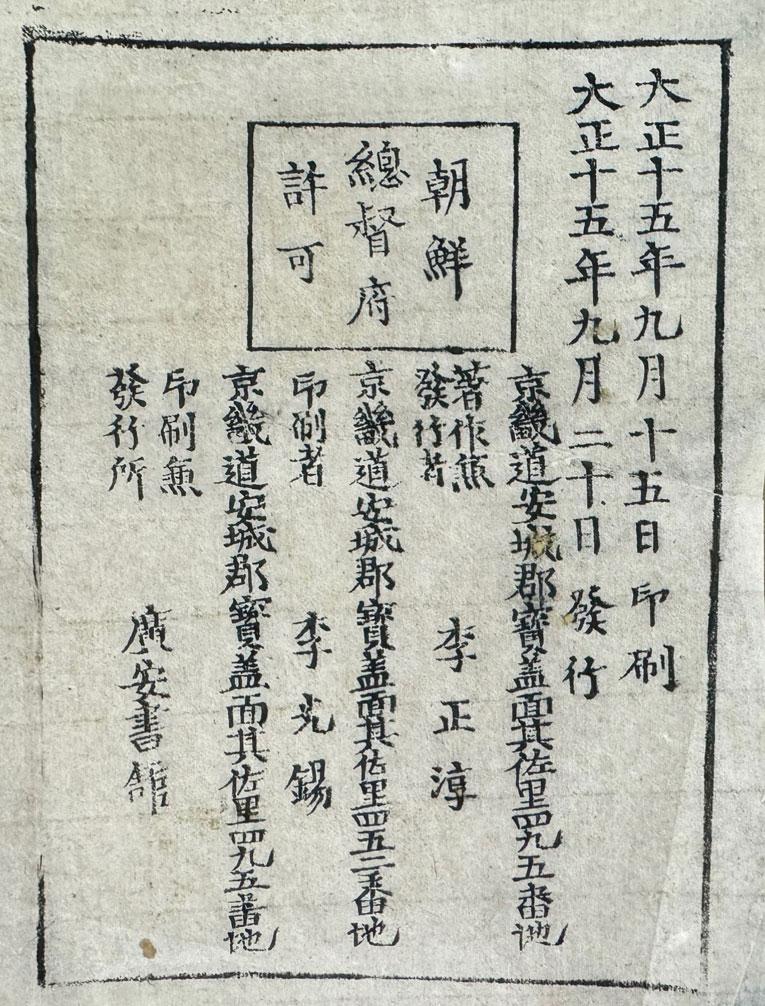 大正十五年九月十五日印刷
大正十五年九月二十日發行
朝鮮
總督府
許可
京畿道安城郡寶盖面其佐里四九五番地
著作兼
發行者 李正淳
京畿道安城郡寶盖面其佐里四五二番地
印刷者 李光錫
京畿道安城郡寶盖面其佐里四九五番地
印刷兼
發行所 廣安書舘